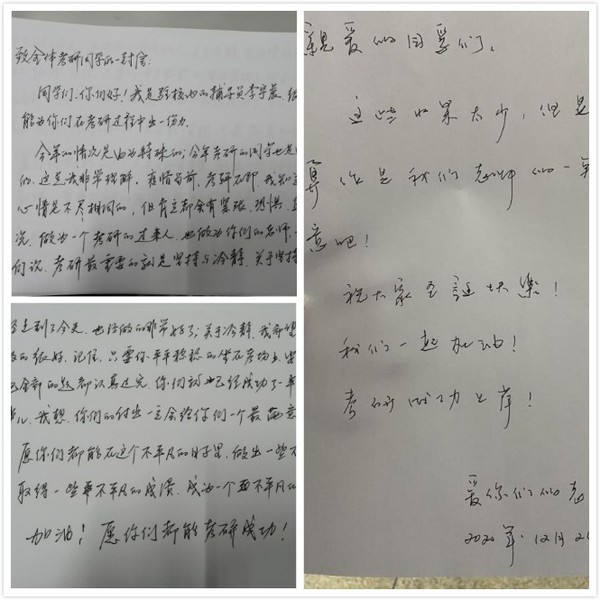 致全体考研同学的一封信:
同学们，你们好！我是驻校也的辅导员李宇晨，
能为你们在考研过程中出一份力
今年的情况是尤为特殊的；今年考研的同学也是
的，这点我非常理解，疫情当前，考研在即，我知道
心情是不尽相同的，但肯定都会有紧张、恐惧、
况，做为一个考研的过来人，也做为你们的老师，
们说，考研最重要的就是坚持与冷静，关于坚持
走到了今天，也经做的非常好了；关于冷静，我希望
的很好，记住，只要你平平稳稳的坐在考场上，
全部的题都认真过完，你们就也已经成功了一半
我想，你们的付出一定会给你们一个最满意
愿你们都能在这个不平凡的日子里，做出一些不
取得一些不平凡的成绩，成为一个不平凡的
加油！愿你们都能考研成功！
亲爱的同学们，
这些水果太少，但是
算作是我们老师的一
意吧！
祝大家圣诞快乐！
我们一起加油！
考研成功上岸！
爱你们的老
2020年12月2